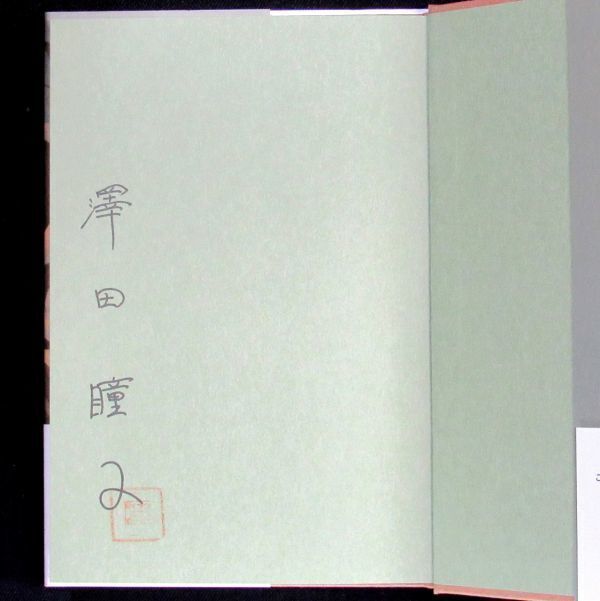 澤田瞳子